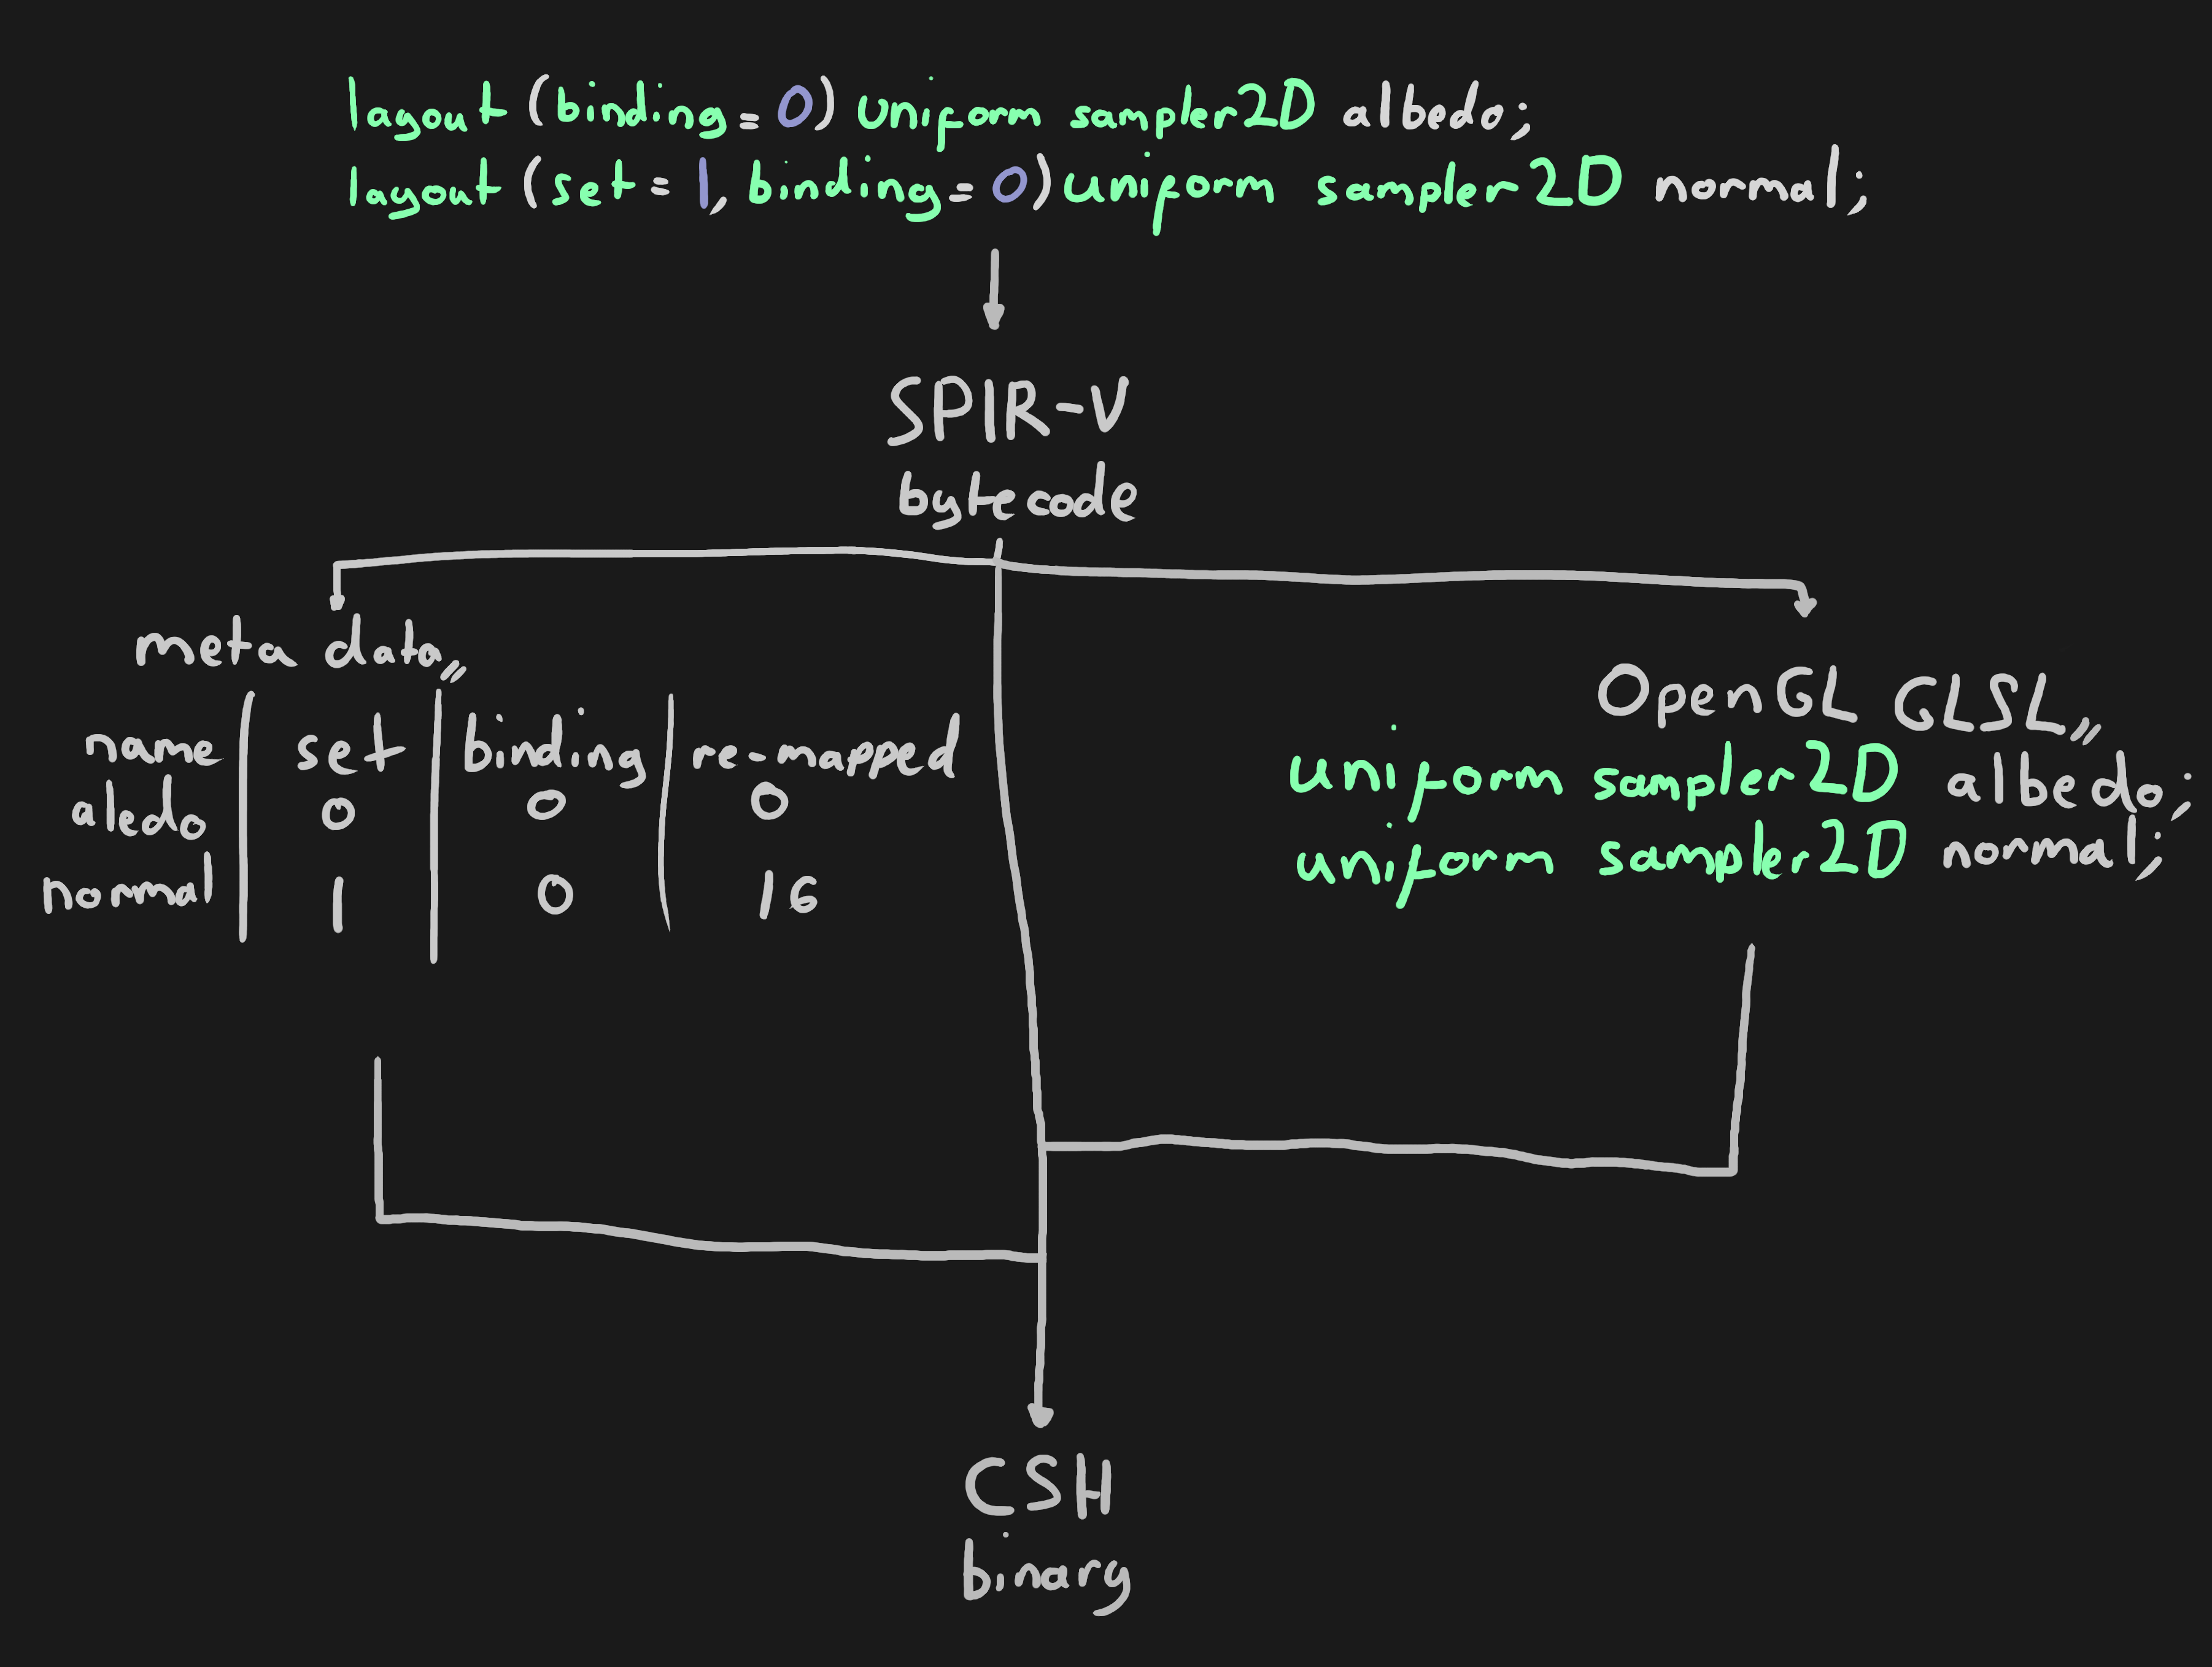 layout (binding=0) uniform sampler2D albedo;
layout (set=1, binding=0) uniform sampler2D normal;
SPIR-V
bytecode
meta data
name set binding re-mapped
aledo 0 0 0
normal 1 0 16
OpenGL GLSL
uniform sampler2D albedo;
uniform sampler2D normal;
CSH
binary